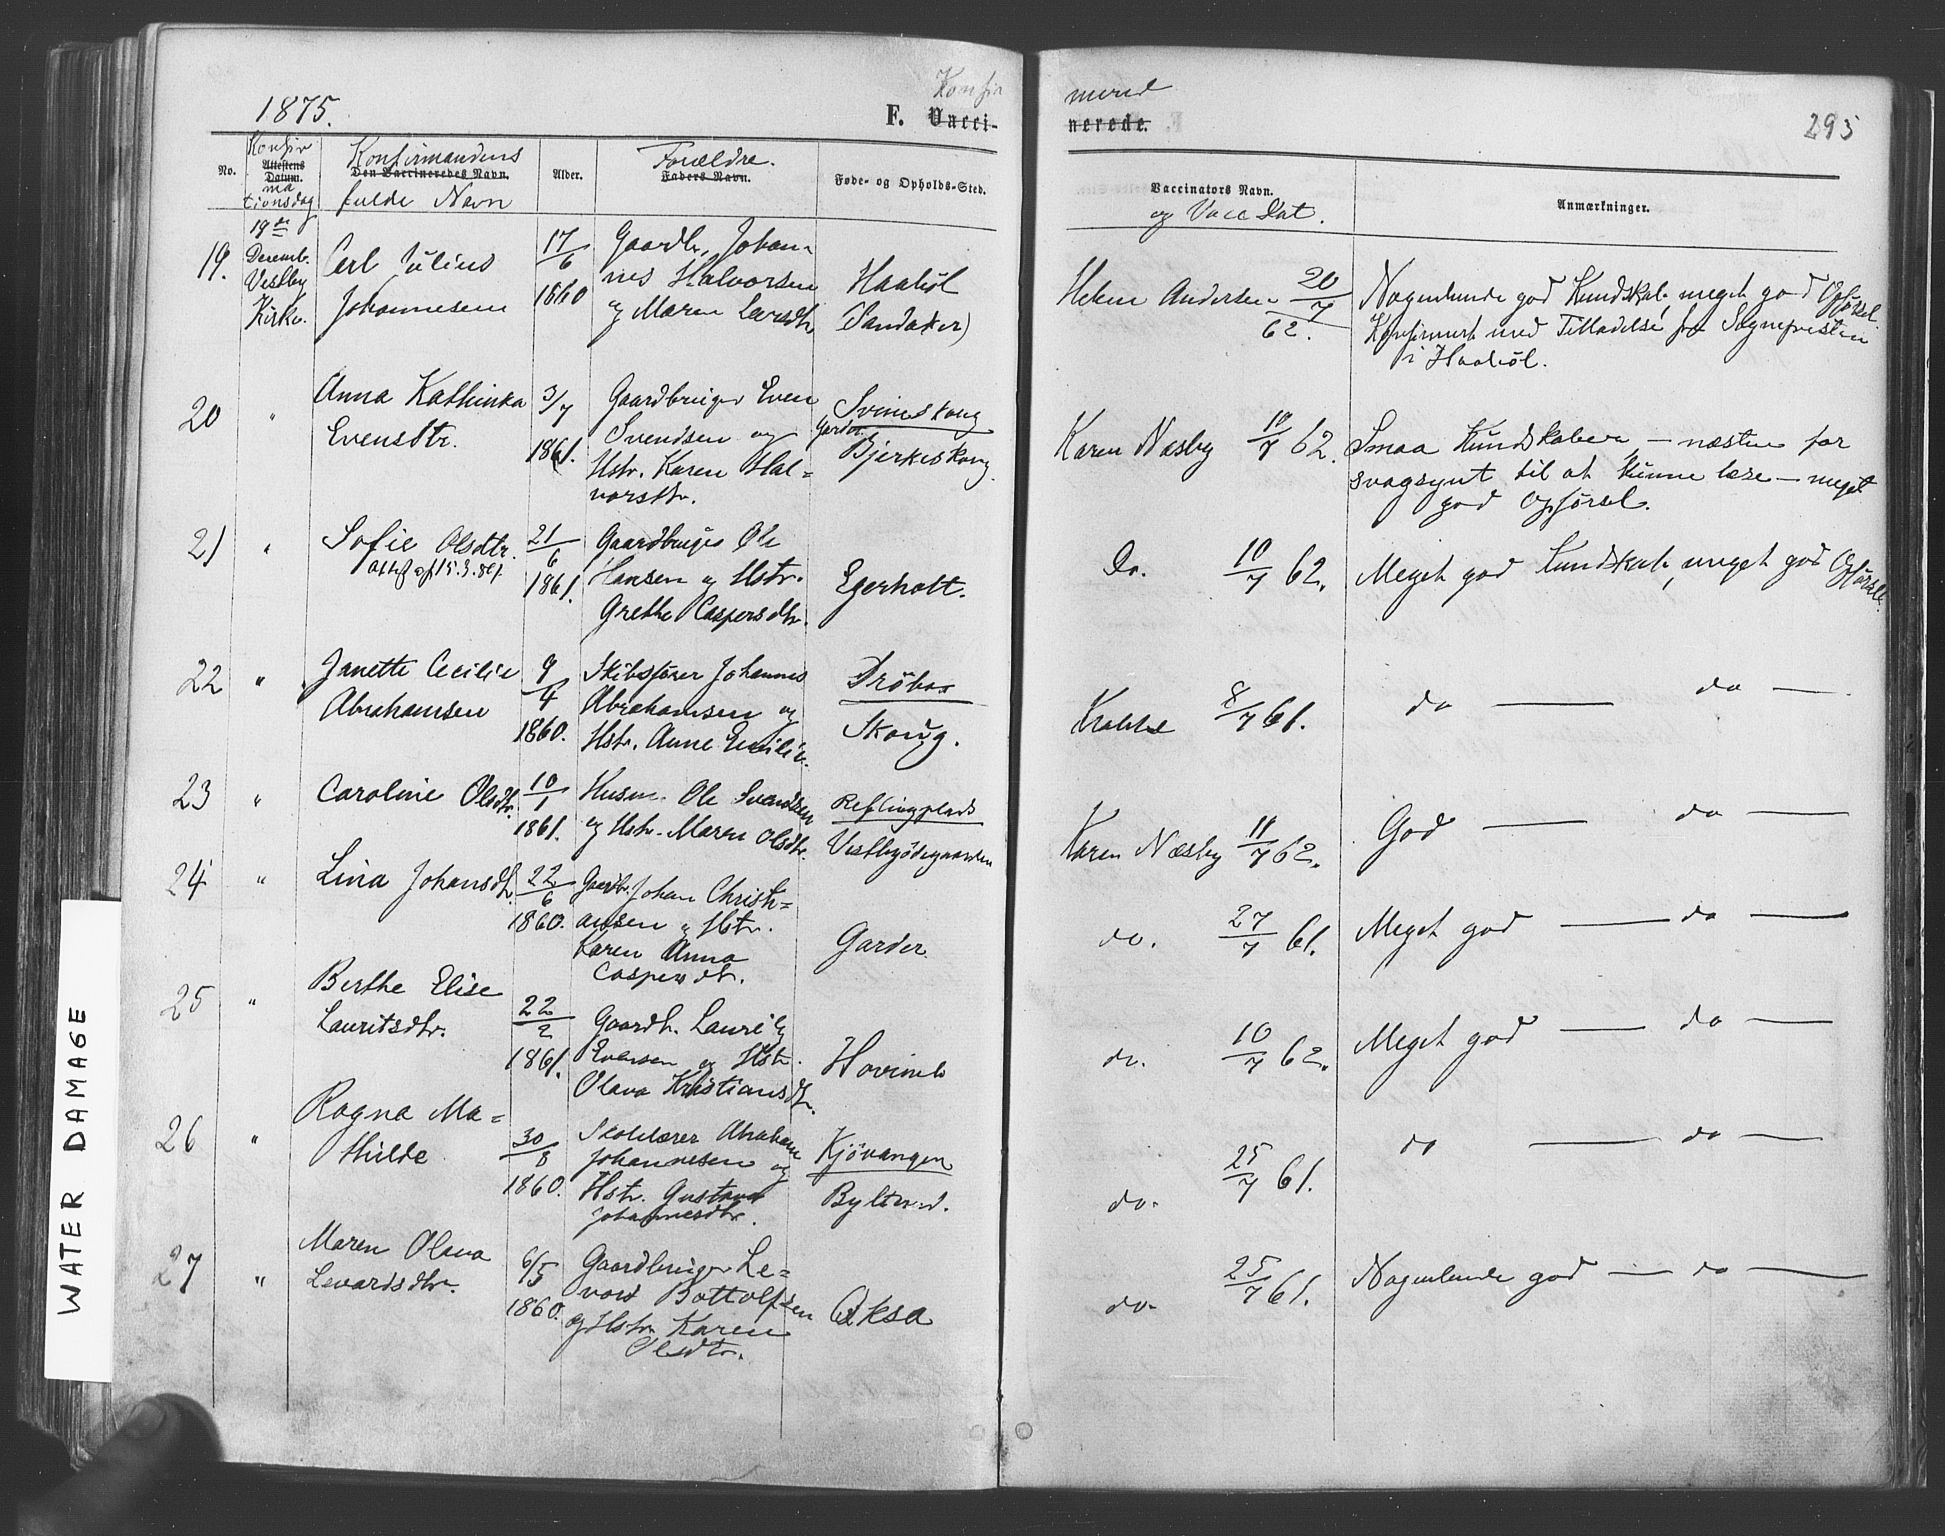 1875.
Konfir
F. Vacci-
No.
Konfir
Attestens
Datum.
ma
tionsdag
Konfirmandens
Den Vaccineredes Navn.
fulde Navn
Alder.
Forældre.
Faders Navn.
Føde- og Opholds-Sted.
19.
19de
Decemb.
Vestby
Kirke.
Carl Julius
Johannesen
17/6
1860
Gaardb. Johan-
nes Halvorsen
og Maren Larsdtr
Haabøl
(Sandaker)
20
"
Anna Kathinka
Evensdtr.
3/7
1861.
Gaardbruger Even
Svendsen og
Hstr. Karen Hal=
vorsdtr.
Svineskoug
Garder
Bjerkeskoug
21
"
Sofie Olsdtr.
21/6
1861.
Gaardbruger Ole
Hansen og Hstr.
Grethe Caspersdtr.
Egerholt.
22
"
Janette Cecilie
Abrahamsen
9/4
1860.
Skibsfører Johannes
Abrahamsen og
Hstr. Anne Emilie.
Drøbak
Skoug.
23
"
Caroline Olsdtr.
10/1
1861.
Husm. Ole Svendsen
og Hstr. Maren Olsdtr.
Reflingplads
Vestbyødegaarden
24
"
Lina Johansdtr.
22/6
1860.
Gaardb. Johan Christi=
ansen og Hstr.
Karen Anna
Caspersdtr.
Garder
25
"
Berthe Elise
Lauritsdtr.
22/2
1861.
Gaardb. Laurits
Evensen og Hstr.
Olava Kristiansdtr.
Hovineb
26
"
Ragna Ma=
thilde
30/8
1860.
Skolelærer Abraham
Johannesen og
Hstr. Gustava
Johannesdtr.
Kjøvangen
Bylterud.
27
"
Maren Olava
Levardsdtr.
6/5
1860.
Gaardbruger Le=
vard Bottolfsen
og Hstr. Karen
Olsdtr.
Aksa
mered
nerede.
295
Vaccinators Navn.
og Vacc Dat.
Anmærkninger.
Helene Andersen 20/7
62.
Nogenlunde god Kundskab, meget god Opførsel.
Konfirmert med Tilladelse fra Sognepresten
i Haabøl.
Karen Næsby 10/7 62.
Smaa Kundskaber, — næsten for
svagsynt til at kunne læse — meget
god Opførsel.
Do. 10/7 62.
Meget god Kundskab, meget god Opførsel.
8/7 61.
do — do —
Karen Næsby 10/7 62.
God — do —
do. 27/7 61.
Meget god — do —
do. 10/7 62.
Meget god — do —
do. 25/7 61.
do — do —
do. 25/7 61.
Nogenlunde god — do —
WATER DAMAGE